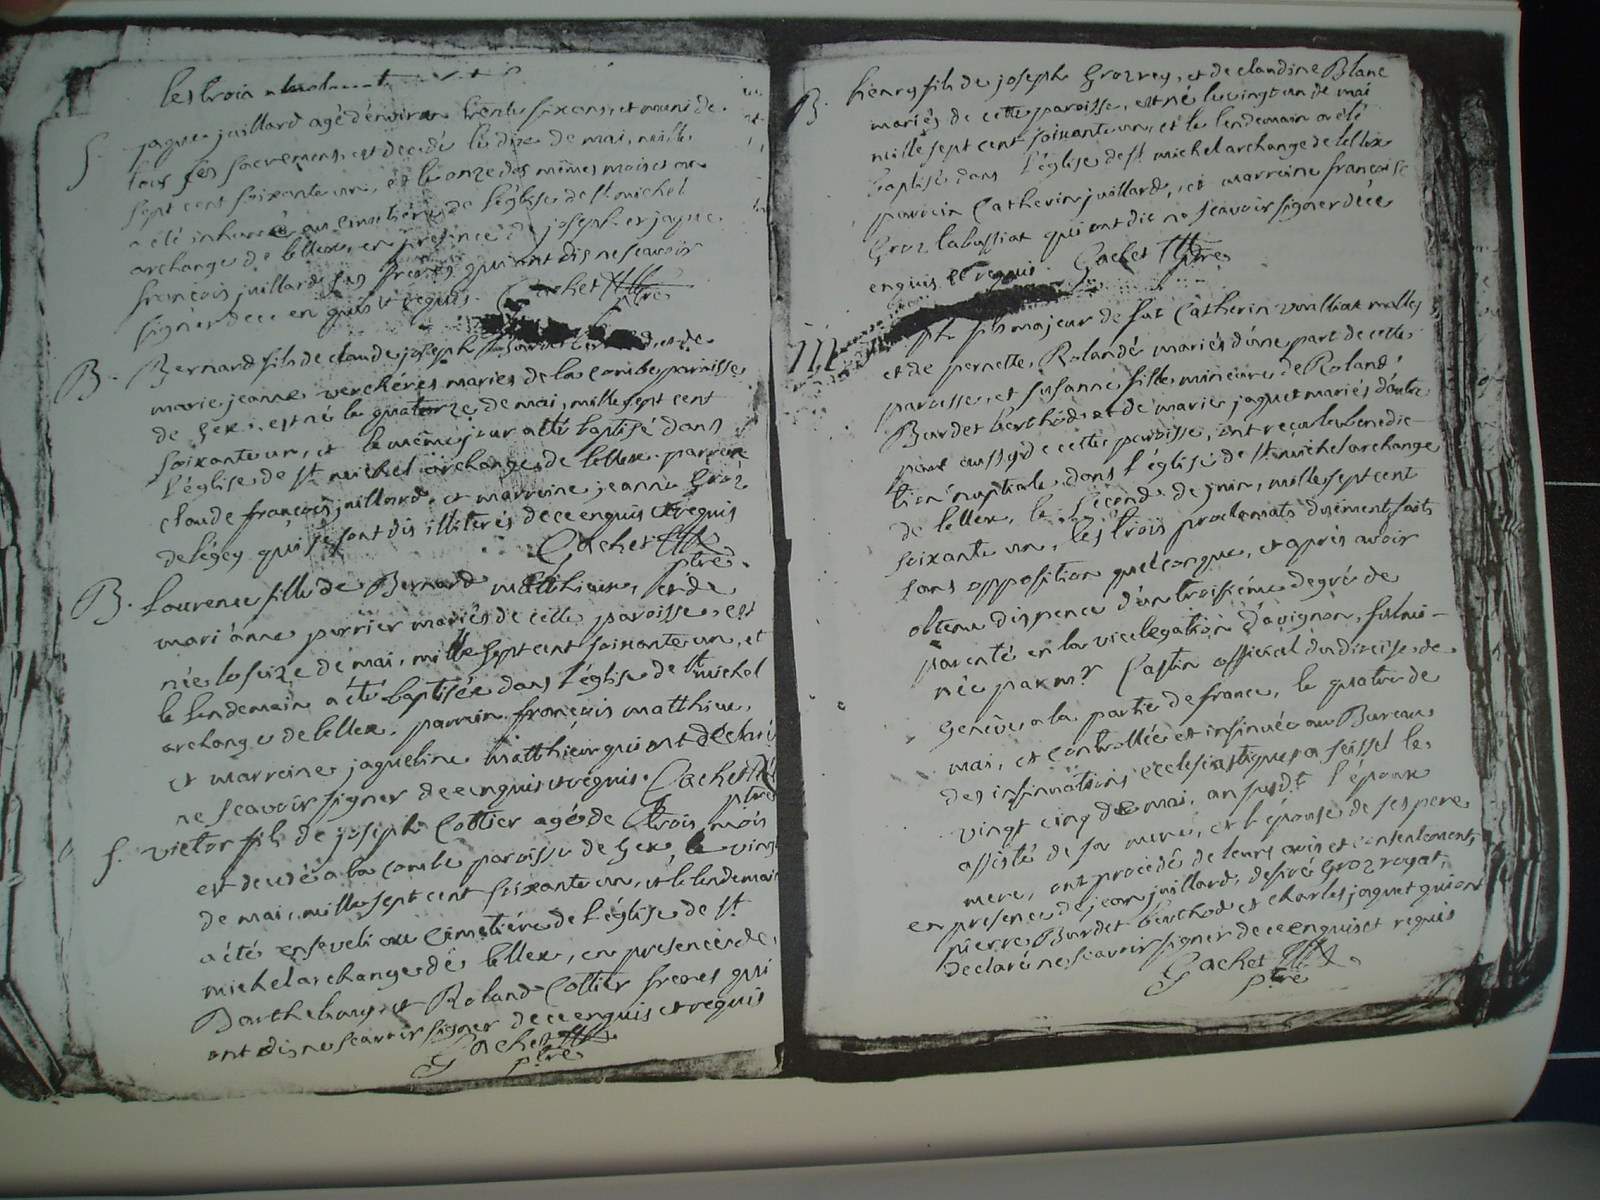 S. jaque juillard agé d'environ trente six ans, et muni de
tous ses sacremens, est decedé le dix de mai, mille
sept cent soixante un, et le onze des mêmes mois et an
a été inhumé au cimetière de l'église de st michel
archange de lellex, en presence de joseph et jaque
françois juillard ses freres qui ont dis ne scavoir
signer de ce enquis et requis. Gachet ptre
B. Bernard fils de claude joseph
marie jeanne verchères mariés de la combe paroisse
de Gex, est né le quatorze de mai, mille sept cent
soixante un, et le même jour a été baptisé dans
l'église de st michel archange de lellex. parrein
claude françois juillard, et marreine jeanne Groz
de légey qui se sont dis illiterés de ce enquis et requis
Gachet
ptre
B. Laurence fille de Bernard matthieu, et de
mari'anne perrier mariés de cette paroisse, est
née le seize de mai, mille sept cent soixante un, et
le lendemain a été baptisée dans l'église de st michel
archange de lellex. parrain françois matthieu,
et marreine jaqueline matthieu qui ont declaré
ne scavoir signer de ce enquis et requis. Gachet
ptre
S. victor fils de joseph Cottier agé de trois mois
est decedé a la combe paroisse de Gex, le vingt
de mai, mille sept cent soixante un, et le lendemain
a été enseveli au cimetière de l'église de st
michel archange de lellex, en presence de
Barthelemy, et Roland Cottier freres qui
ont dis ne scavoir signer de ce enquis et requis
Gachet
ptre
B. henry fils de joseph Grozrey, et de claudine Blanc
mariés de cette paroisse, est né le vingt un de mai
mille sept cent soixante un, et le lendemain a été
baptisé dans l'église de st michel archange de lellex
parrain Catherin juillard, et marreine françoise
Groz labassiat qui ont dit ne scavoir signer de ce
enquis et requis. Gachet ptre
fils majeur de fut Catherin
et de pernette Rolandé mariés d'une part de cette
paroisse, et susanne fille mineure de Roland
Burdet berthod et de marie jaquet mariés d'autre
part aussy de cette paroisse, ont reçu la benedic-
tion nuptiale dans l'église de st michel archange
de lellex, le second de juin, mille sept cent
soixante un, les trois proclamats duëment faits
sans opposition quelconque, et après avoir
obtenu dispence d'un troisième degré de
parenté en la vicelegation d'avignon, fulmi-
née par mr Castin official du diocèse de
Genêve a la partie de france, le quatre de
mai, et controllée et insinuée au Bureau
des insinuations ecclesiastiques a seissel le
vingt cinq de mai, an susdt l'époux
assisté de sa mere, et l'épouse de ses pere
mere, ont procedé de leurs avis et consentement,
en presence de jean juillard, desiré Grozroyat,
pierre Burdet berthod et charles jaquet qui ont
declaré ne scavoir signer de ce enquis et requis
Gachet
ptre